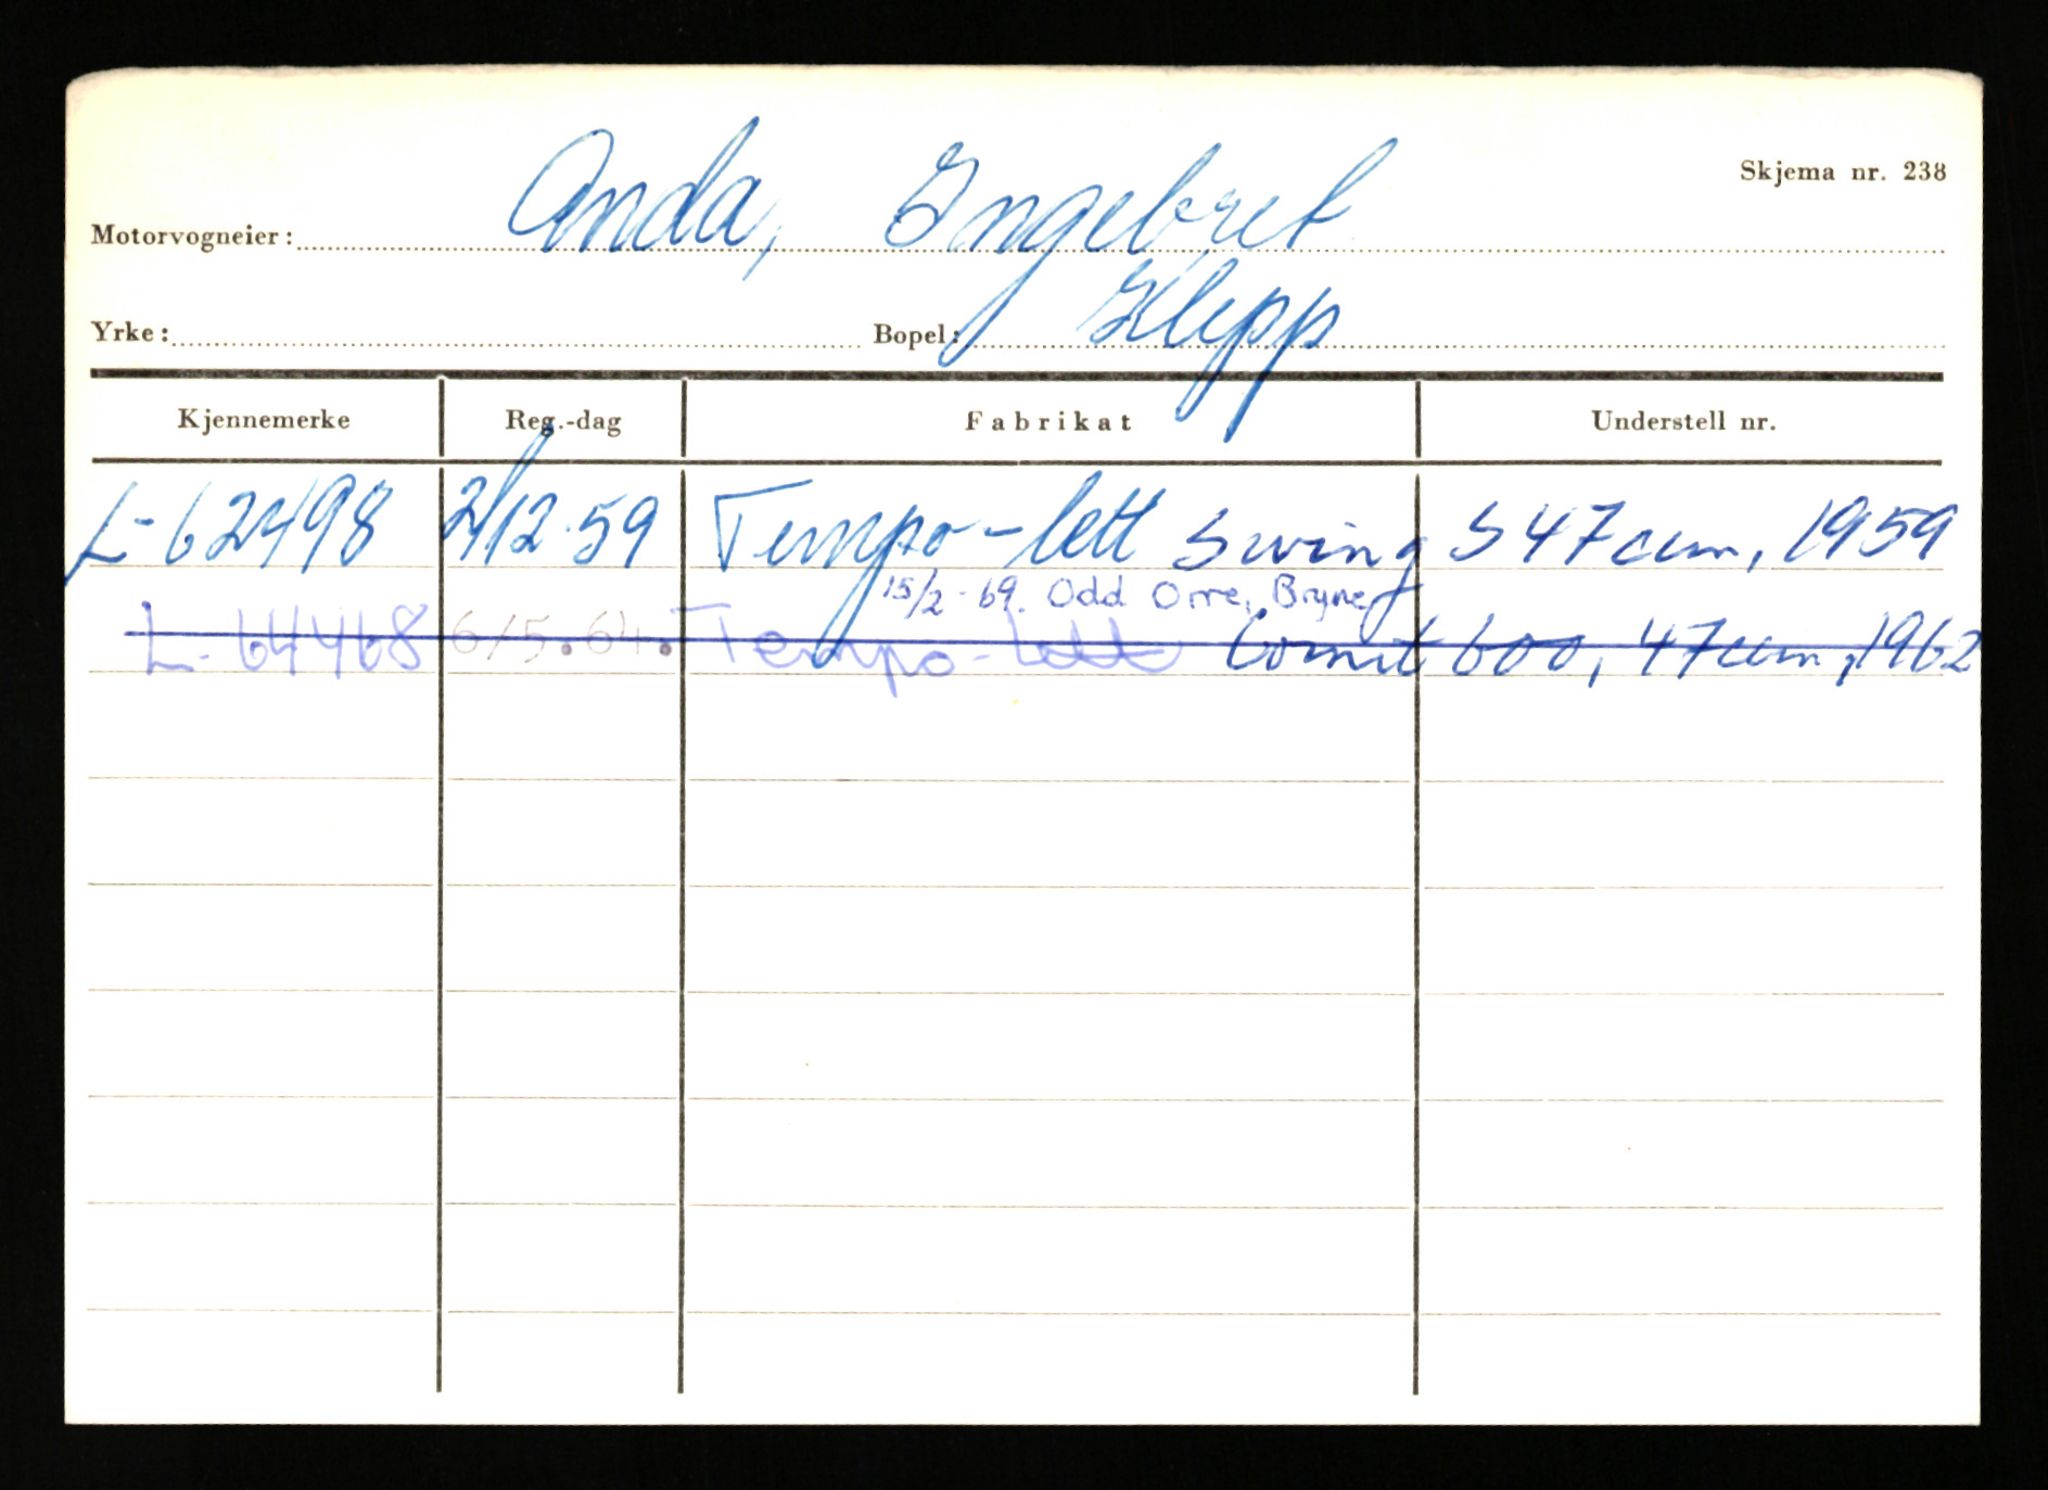 Skjema nr. 238
Motorvogneier: Anda, Ingebret
Yrke: Bopel: Klepp
Kjennemerke Reg.-dag Fabrikat Understell nr.
L-62498 2/12.59 Tempo-lett Swing S 47ccm, 1959
15/2-69. Odd Orre, Bryne
L-64468 6/5.64. Tempo-lett Comet 600, 47ccm, 1962